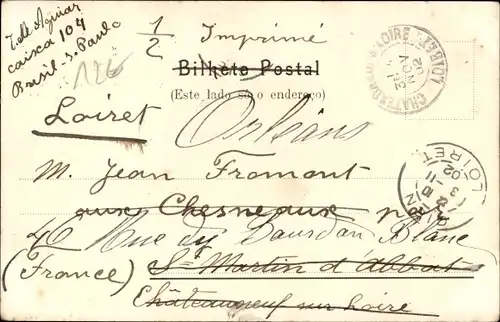 J. de Aguiar
caixa 104
Brasil - S. Paulo
1/2 Imprimé
126
Bilhete Postal
(Este lado só o endereço)
Loiret
Orléans
M. Jean Fromont
aux Chesneaux
46 Rue du Bourdon Blanc
(France)
St Martin d'Abbat
Châteauneuf sur Loire
LOIRET
LOIRET
02